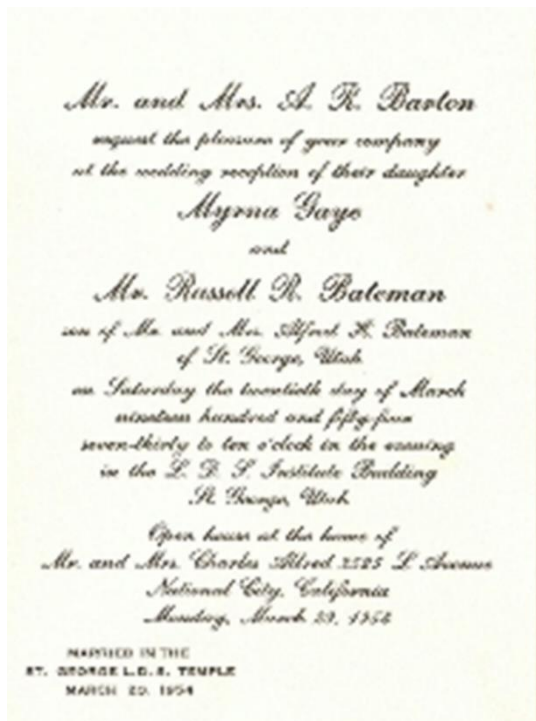 Mr. and Mrs. A. R. Barton
request the pleasure of your company
at the wedding reception of their daughter
Myrna Gaye
and
Mr. Russell R. Bateman
son of Mr. and Mrs. Alfred H. Bateman
of St. George, Utah
on Saturday the twentieth day of March
nineteen hundred and fifty-four
seven-thirty to ten o'clock in the evening
in the L. D. S. Institute Building
St. George, Utah
Open house at the home of
Mr. and Mrs. Charles Allred 2525 L Avenue
National City, California
Monday, March 29, 1954
MARRIED IN THE
ST. GEORGE L.D.S. TEMPLE
MARCH 20, 1954